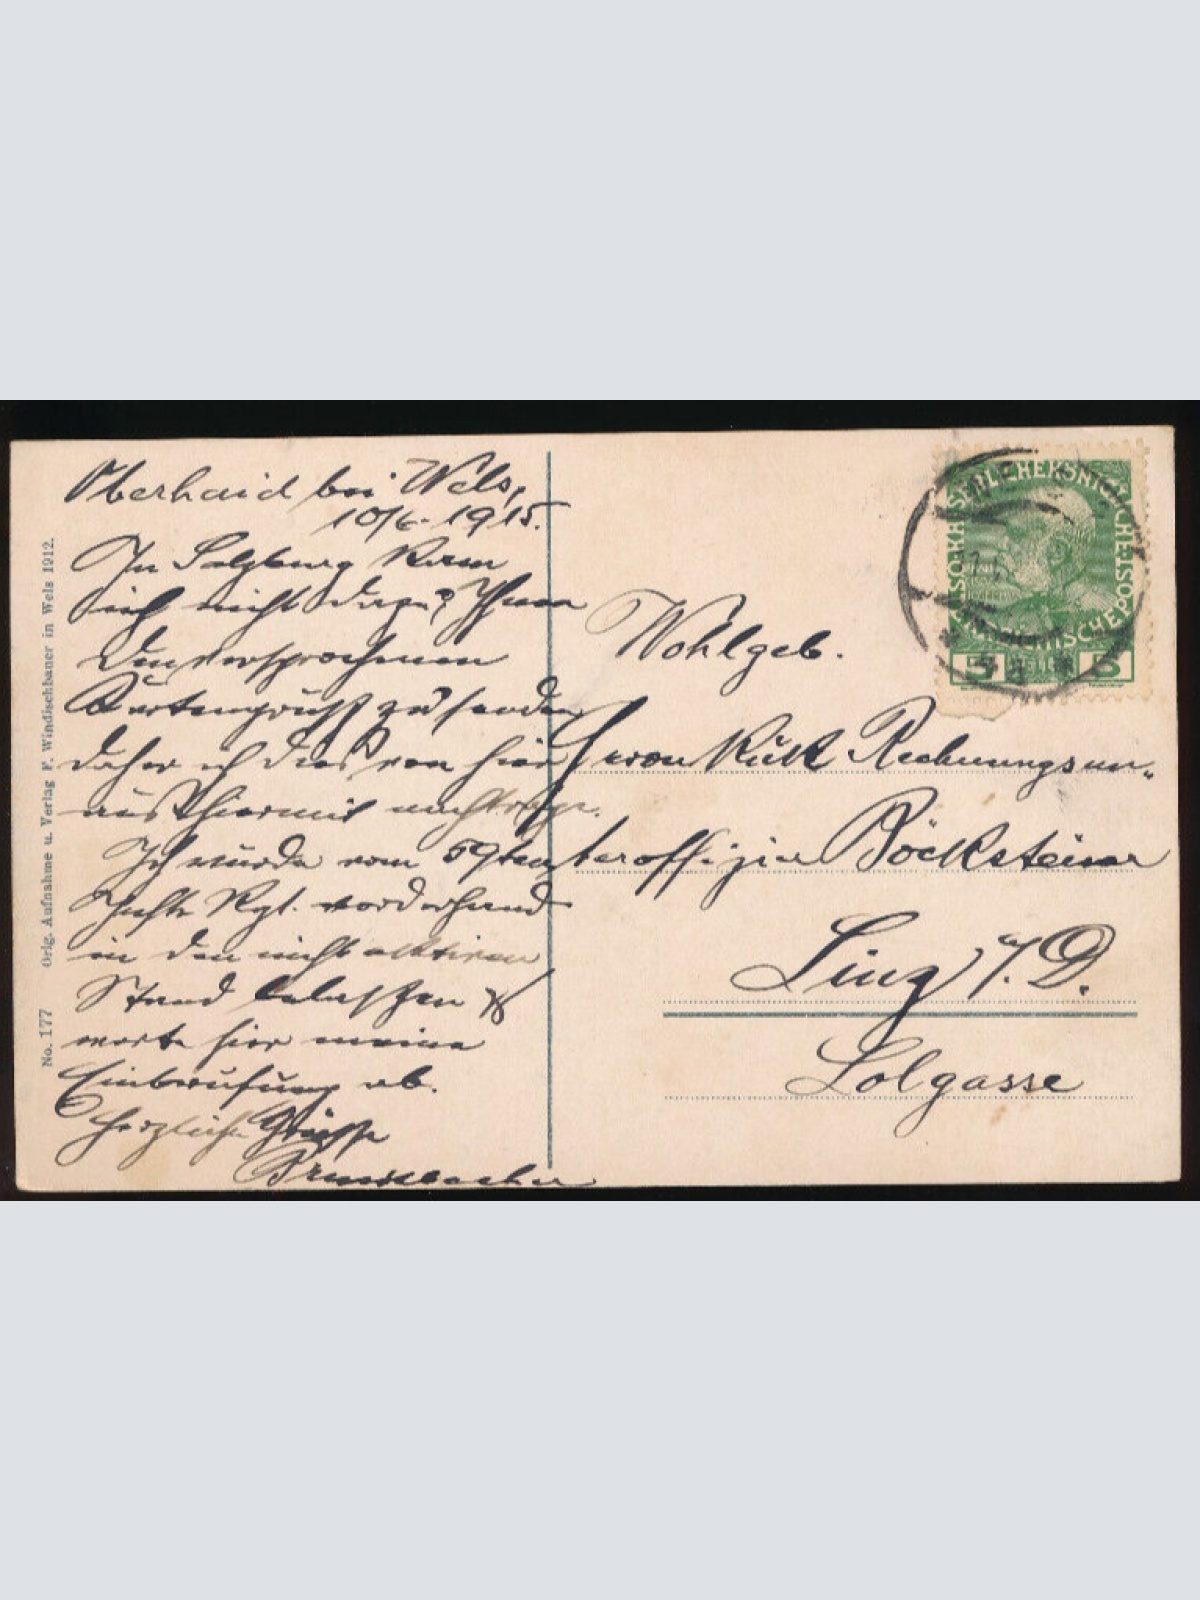 Oberhaid bei Wels,
10/6. 1915.
In Salzburg kam
ich nicht dazu, Ihnen
den versprochenen
Kartengruß zu senden
daher ich dies von hier
aus hiermit nachtrage.
Ich wurde vom 59ten
Inftr. Rgt. vorderhand
in den nicht aktiven
Stand belassen &
warte hier meine
Einberufung ab.
Herzliche Grüsse
Wohlgeb.
Frau k.u.k. Rechnungsun-
teroffizier Böcksteiner
Linz a/D.
Lolgasse
No. 177 Orig. Aufnahme u. Verlag F. Windischbauer in Wels 1912.
5 5